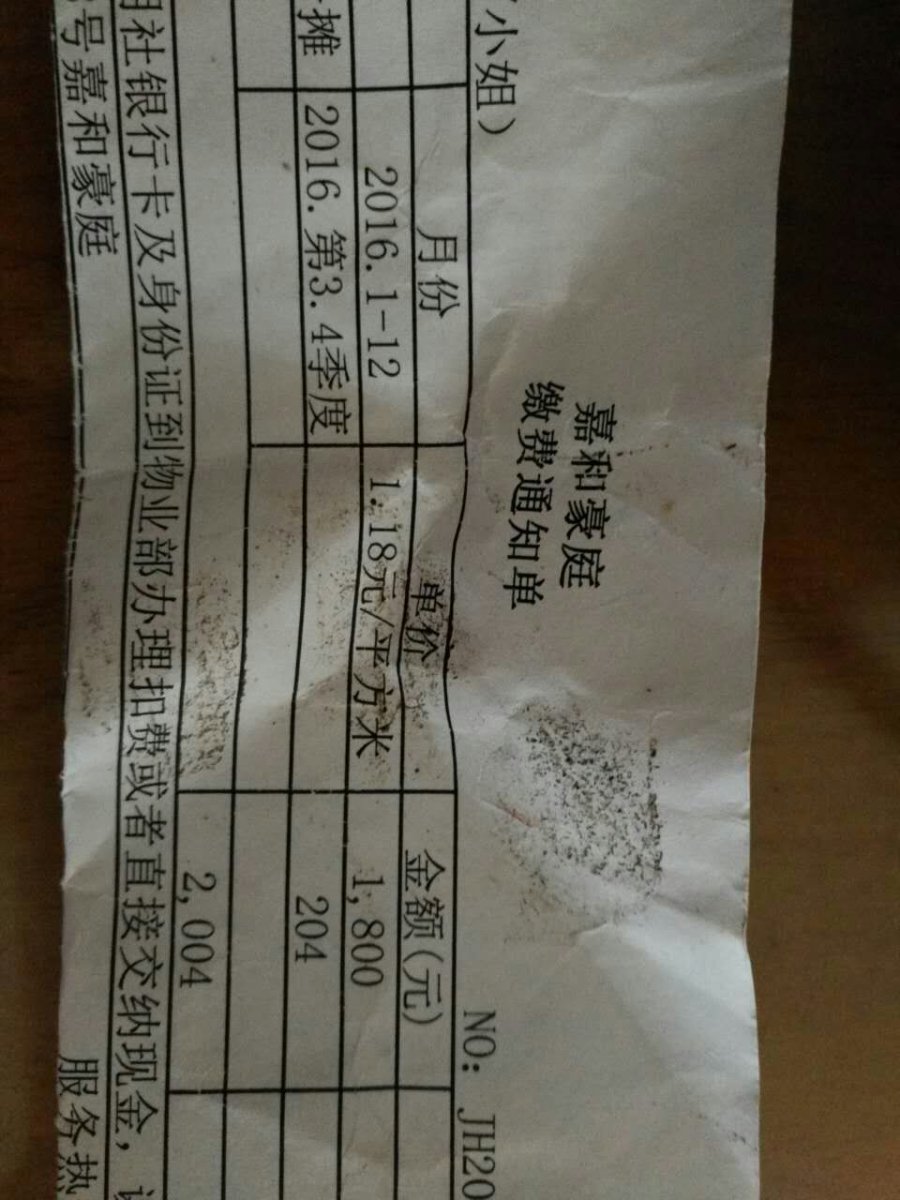 嘉和豪庭
缴费通知单
小姐） NO： JH20
月份 单价 金额(元)
2016.1-12 1.18元/平方米 1,800
摊 2016.第3.4季度 204
2,004
社银行卡及身份证到物业部办理扣费或者直接交纳现金，
号嘉和豪庭 服务热